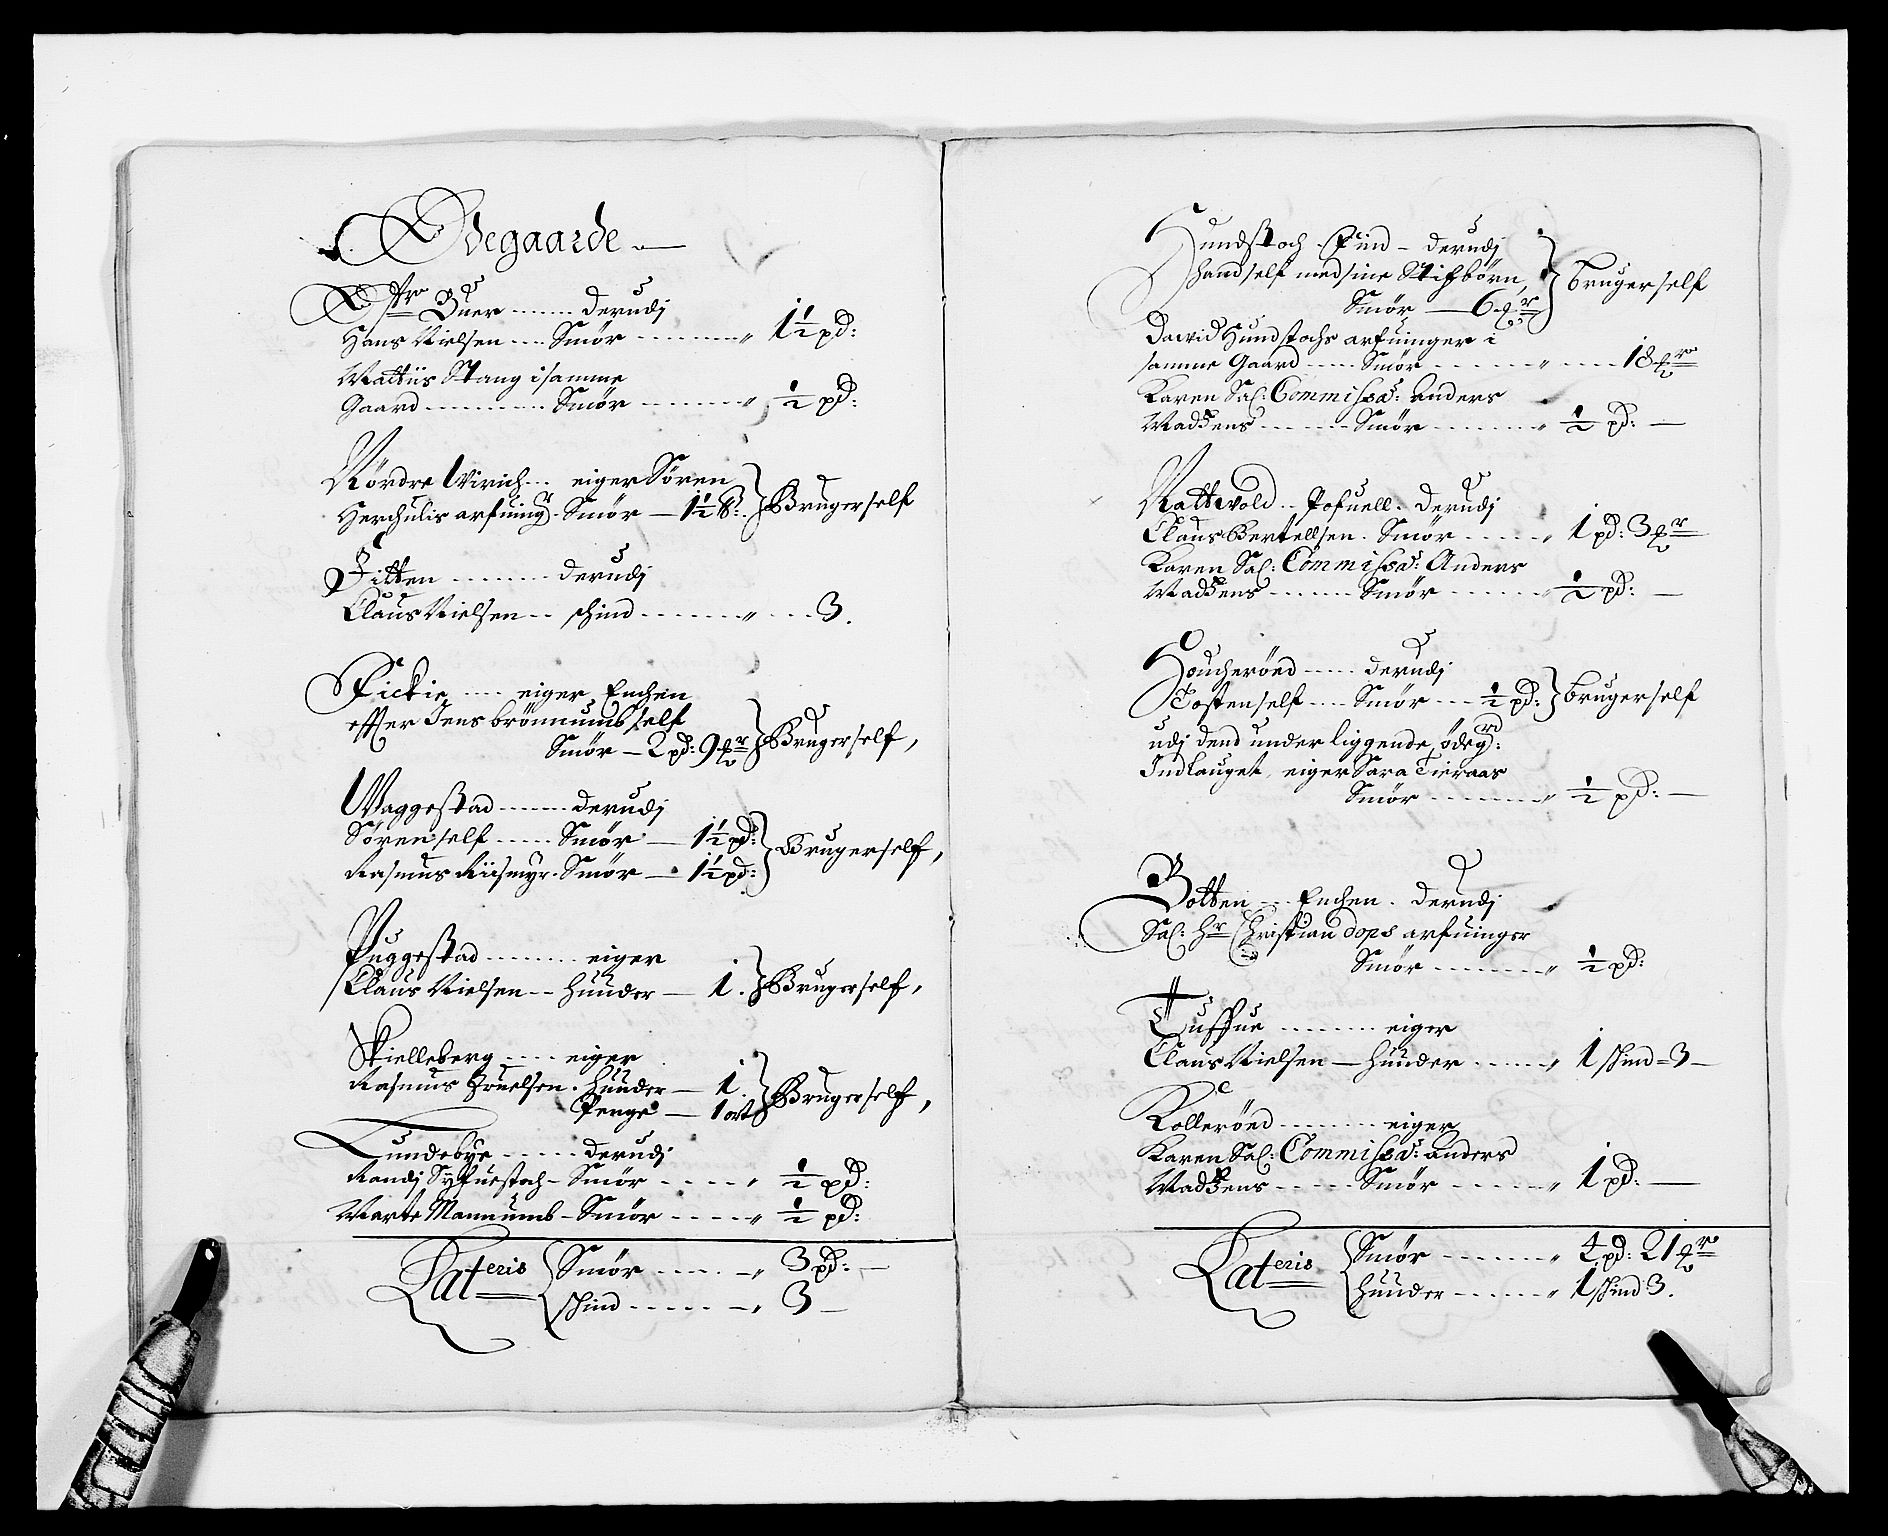 Ødegaarde
Øfre Buer ...... derudj
Hans Nielsen .... Smør ........ " 1½ pd:
Mattiis Stang i samme
Gaard ......... Smør ........ " ½ pd:
Nördre Wirich... eiger Sören
Herchulis arfuing. Smør — 1½ ℔: } Bruger self
Fitten ........ derudj
Claus Nielsen .. skind ........ " ... 3.
Fickie .... eiger Enchen
effter Jens brönnumb self
Smör — 2 pd: 9 mr } Bruger self,
Waggestad ...... derudj
Sören self ..... Smör — 1½ pd:
Rasmus Riismyr. Smör — 1½ pd: } Bruger self,
Puggestad ........ eiger
Claus Nielsen -- Huuder — 1. } Bruger self,
Skielleberg ..... eiger
Rasmus Pouelsen. Huuder — 1.
Penge — 1 ort } Bruger self,
Lundebye ...... derudj
Randj - Smör ..... " ½ pd:
Marte Mannumb - Smör ..... " ½ pd:
Lateris { Smör ..... " 3 pd: —
skind ...... " 3 —
Hundstoch - derudj
hand self med sine Stifbörn,
Smör — 6 mr } Bruger self
Dawid Hundstochs arfuinger i
samme Gaard ..... Smör ...... " .... 18 mr
Karen Sal: Commissa: Anders
Madzens ....... Smör ....... " ½ pd: —
Nattvold .. Pofuell. derudj
Claus Bertellsen. Smör ..... " 1 pd: 3 mr
Karen Sal: Commissa: Anders
Madzens ....... Smör ...... " ½ pd: —
Houcheröed ..... derudj
Tosten self .... Smör ... ½ pd: } Bruger self
udj dend underliggende ödegrd:
Indlauget, eiger Sara Tieraas
Smör ........ " ½ pd: —
Botten ... Enchen. derudj
Sal: Hr Christian dops arfuinger
Smör ........ " ½ pd:
Tuffue ........ eiger
Claus Nielsen — Huuder ..... " 1 skind = 3 —
Kolleröed ........ eiger
Karen Sal: Commissa: Anders
Madzens ...... Smör ...... " 1 pd: —
Lateris { Smör ...... " 4 pd: 21 mr
Huuder ...... " 1 skind 3.